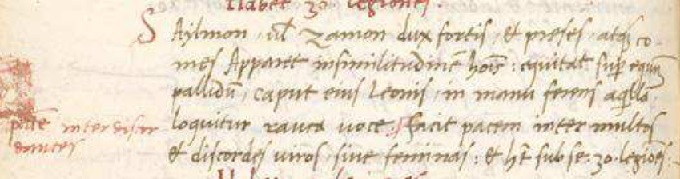 Habet 30 legiones
S Aylmon, ul Zamon dux fortis, et preses, atq; co
mes Apparet in similitudinē hoīs: equitat sup equū
pallidū, caput eius Leonis, in manu ferens aqllā,
loquitur rauca voce: facit pacem inter multos
et discordes viros, siue feminas: et ht sub se: 30. legiōes.
pacē inter discor